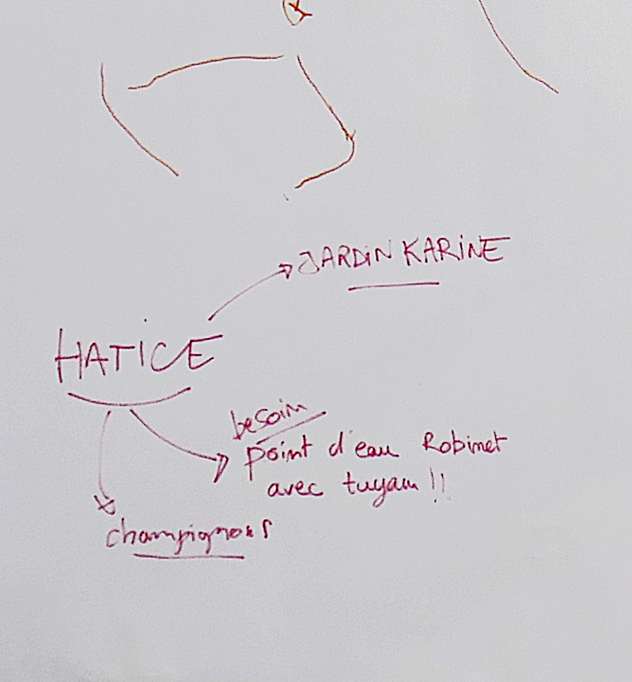 JARDIN KARINE
HATICE
besoin
point d'eau Robinet
avec tuyau !!
champignons